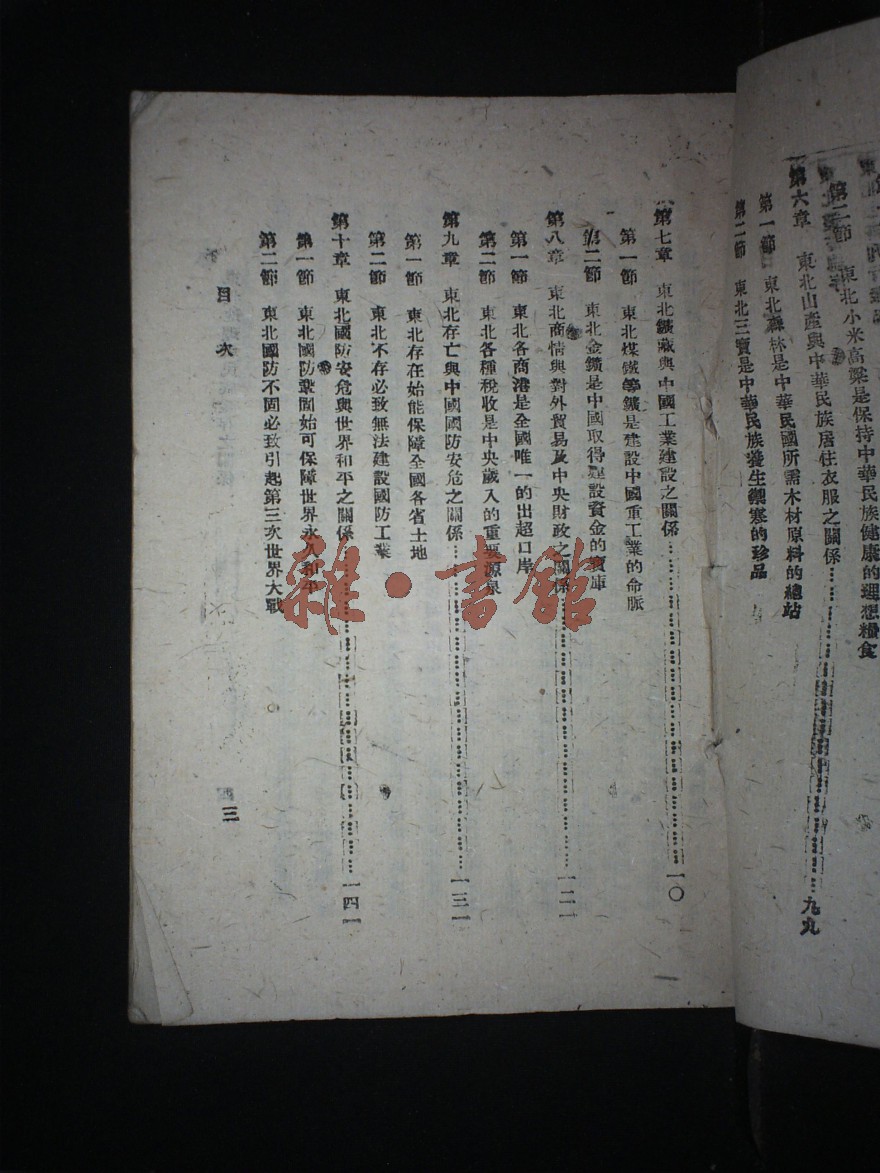 第二節 東北小米高粱是保持中華民族健康的理想糧食
第六章 東北山產與中華民族居住衣服之關係……九九
第一節 東北森林是中華民國所需木材原料的總站
第二節 東北三寶是中華民族發生禦寒的珍品
第七章 東北鑛藏與中國工業建設之關係……一〇
第一節 東北煤鐵等鑛是建設中國重工業的命脈
第二節 東北金鑛是中國取得建設資金的寶庫
第八章 東北商情與對外貿易及中央財政之關係……一二一
第一節 東北各商港是全國唯一的出超口岸
第二節 東北各種稅收是中央歲入的重要源泉
第九章 東北存亡與中國國防安危之關係……一三一
第一節 東北存在始能保障全國各省土地
第二節 東北不存必致無法建設國防工業
第十章 東北國防安危與世界和平之關係……一四一
第一節 東北國防鞏固始可保障世界永久和平
第二節 東北國防不固必致引起第三次世界大戰
目次
三
雜·書館